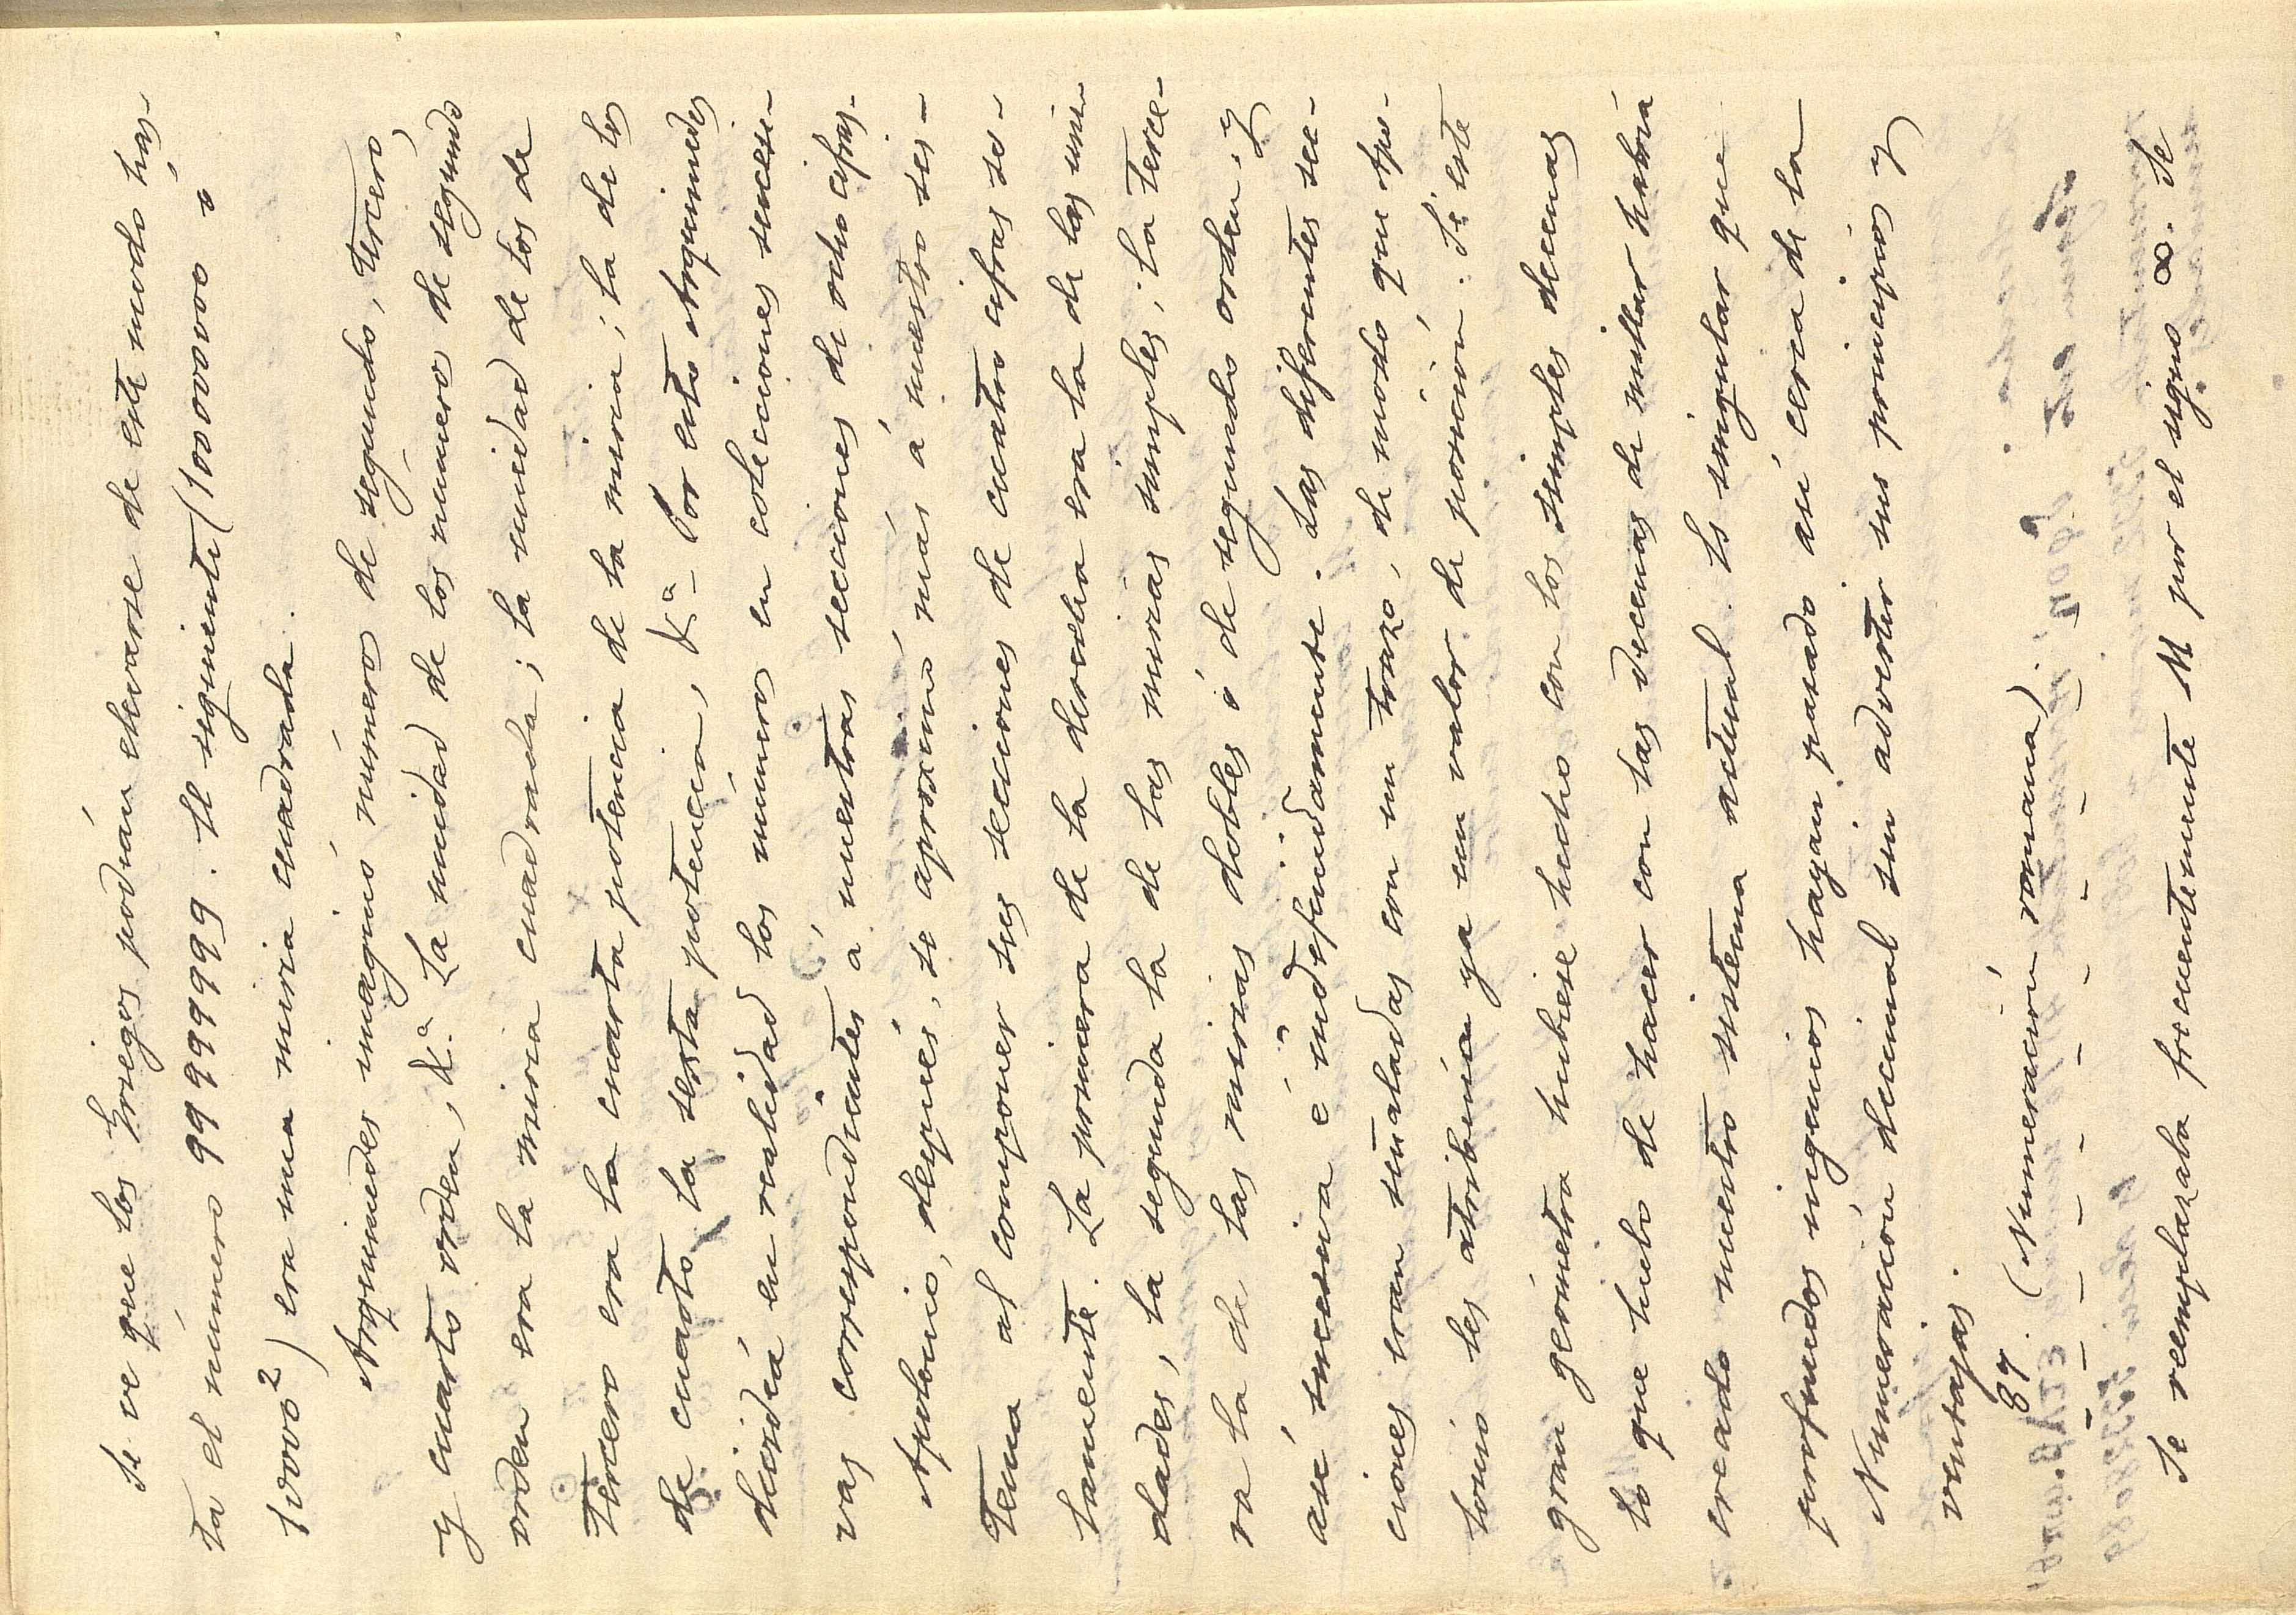 Se ve que los Griegos podían elevarse de este modo has-
ta el número 99999999. El siguiente (100000000 ó
10000²) era una miria cuadrada.
Arquimedes imaginó números de segundo, tercero,
y cuarto orden, &.ª La unidad de los número de segundo
orden era la miria cuadrada; la unidad de los de
tercero era la cuarta potencia de la miria; la de los
de cuarto la sesta potencia, &.ª Por esto Arquimedes
decidía en realidad los números en colecciones sucesi-
vas correspondientes á nuestras secciones de ocho cifras.
Apolonio, después, se aproximó más á nuestro sis-
tema al componer sus secciones de cuatro cifras so-
lamente. La primera de la derecha era la de las uni-
dades, la segunda la de las mirias simples; la terce-
ra la de las mirias dobles ó de segundo orden; y
así sucesiva é indefinidamente. Las diferentes sec-
ciones eran señaladas con un trazo, de modo que Apo-
lonio les atribuía ya un valor de posición. Si este
gran geómetra hubiese hecho con los simples decenas
lo que hubo de hacer con las decenas de millar habría
creado nuestro sistema actual. Es singular que
profundos ingenios hayan pasado así cerca de la
Numeración decimal sin advertir sus principios y
ventajas.
87. (Numeración romana)
Se reemplazaba frecuentemente M por el signo ∞. Se